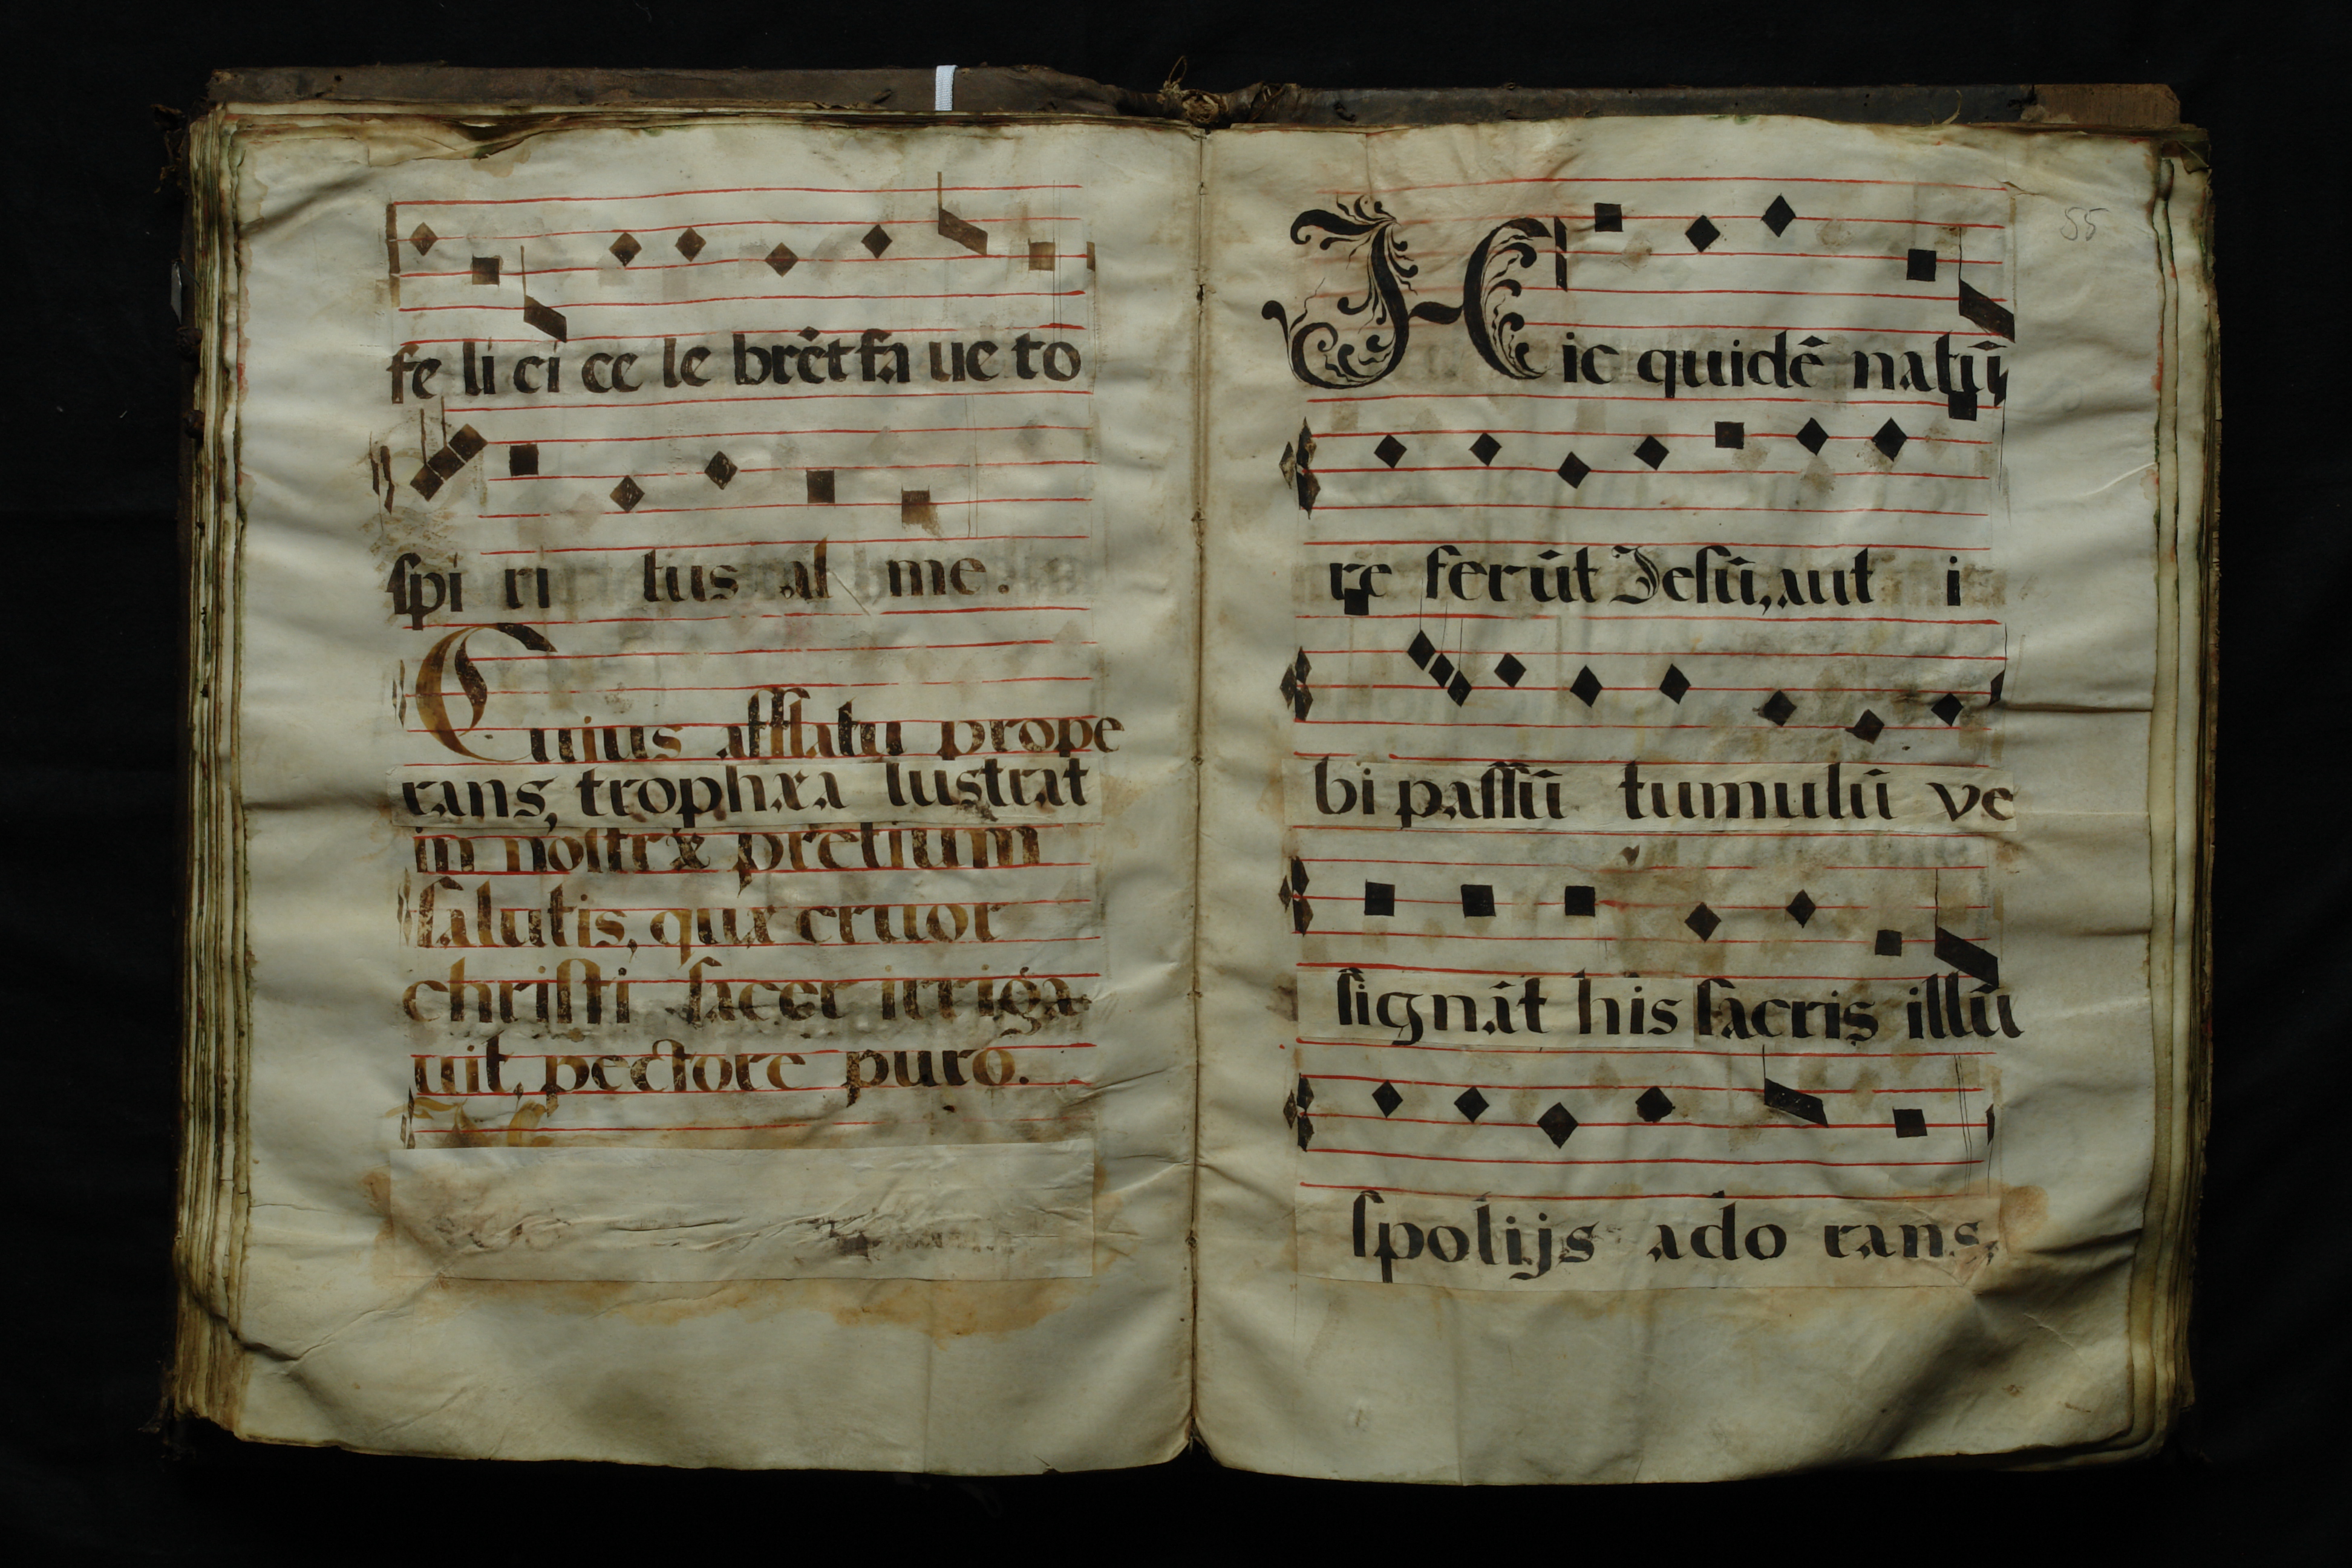 fe li ci ce le brêt fa ue to
ſpi ri tus al me.
Cuius afflatu prope
rans, trophæa lustrat
in noſtræ pretium
ſalutis, quæ cruor
chriſti ſacer irriga
uit, pectore puro.
55
Hic quidê natû
re ferût Jeſû, aut i
bi paſſû tumulû ve
ſignât his ſacris illû
ſpolijs ado rans,